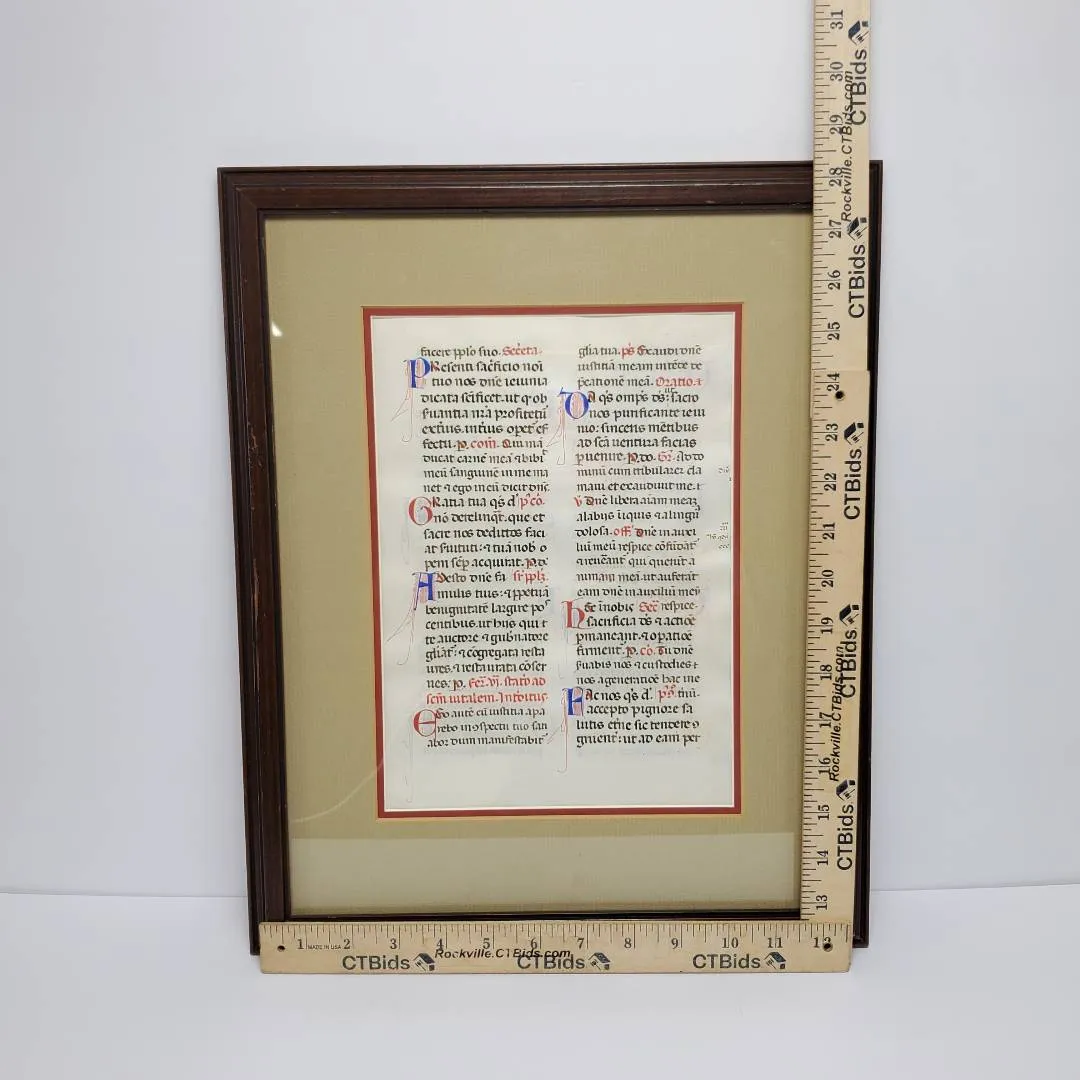 facere pplo suo. Secreta.
Resenti sacrificio noi
tuo nos dne ieiunia
dicata scificet. ut q ob
suantia nra profitetur
exterius. interius opet ef
fectu. p. com. Qui man
ducat carne mea & bibit
meu sanguine in me ma
net & ego in eu dicit dns.
Ratia tua qs d. p co.
no derelinqt. que et
sacre nos deditos faci
at suituti: & tua nob o
pem sep acquirat. p. do
Adesto dne fa sr pplm
mulis tuis: & ppetua
benignitate largire pos
centibus. ut hys qui t
te auctore & gubnatore
gliant: & cogregata resta
ures. & restaurata coser
ues. p. fer. vj. stato ad
scm vitalem. Introitus
Ego aute cu iustitia apa
rebo in 9spectu tuo sa
abor dum manifestabit
glia tua. ps Exaudi dne
iustitia meam intede de
pcatione mea. Oratio.
DA qs omps ds: ut sacro
nos purificante ieiu
nio: sinceris metibus
ad sca ventura facias
puenire. p. do. Gr. Ad do
minu cum tribularer cla
maui et exaudiuit me.
v Dne libera aiam mea
a labijs iniquis & a lingua
dolosa. off. Dne in auxi
liu meu respice cofundat
& reueant qui querut a
nimam mea. ut auferat
eam dne in auxiliu meu
hec in nobis Sec respice.
sacrificia ds & actioe
pmaneant. & opatioe
firment. p. co. Tu dne
suabis nos & custodies
nos a generatione hac in e
FAc nos qs d. ps mu.
accepto pignore sa
lutis etne sic tendere 9
gruent: ut ad eam per
31
30
29
28
27
26
25
24
23
22
21
20
19
18
17
16
15
14
13
CTBids
Rockville.CTBids.com
CTBids
CTBids
CTBids
CTBids
Rockville.CTBids.com
CTBids
1 MADE IN USA 2 3 4 5 6 7 8 9 10 11 12
CTBids Rockville.CTBids.com CTBids CTBids